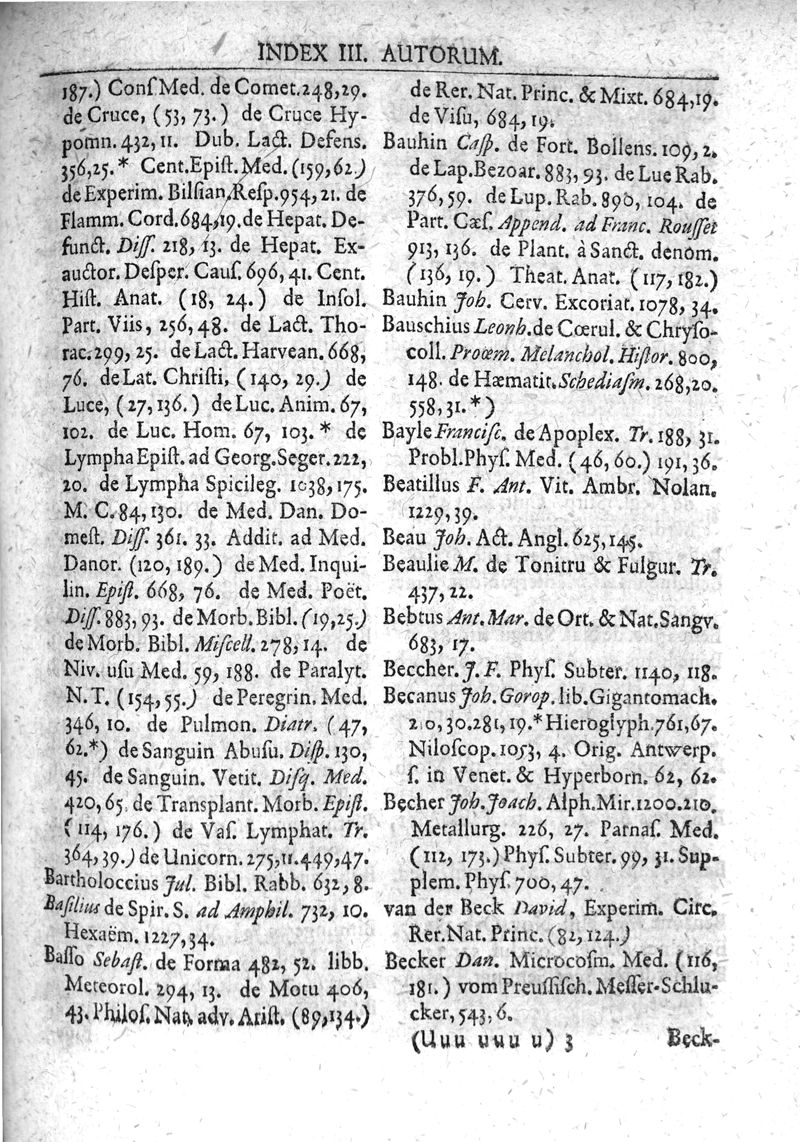 INDEX III. AUTORUM.
187.) Conſ Med. de Comet. 248, 29.
de Cruce, (53, 73.) de Cruce Hy-
pomn. 432, 11. Dub. Lact. Defens.
356, 25. * Cent. Epiſt. Med. (159, 62.)
de Experim. Bilſian, Reſp. 954, 21. de
Flamm. Cord. 684, 19. de Hepat. De-
funct. Diſſ. 218, 13. de Hepat. Ex-
auctor. Deſper. Cauſ. 696, 41. Cent.
Hiſt. Anat. (18, 24.) de Inſol.
Part. Viis, 256, 48. de Lact. Tho-
rac. 299, 25. de Lact. Harvean. 668,
76. de Lat. Chriſti, (140, 29.) de
Luce, (27, 136.) de Luc. Anim. 67,
102. de Luc. Hom. 67, 103. * de
Lympha Epiſt. ad Georg. Seger. 222,
20. de Lympha Spicileg. 1038, 175.
M. C. 84, 130. de Med. Dan. Do-
meſt. Diſſ. 361. 33. Addit. ad Med.
Danor. (120, 189.) de Med. Inqui-
lin. Epiſt. 668, 76. de Med. Poët.
Diſſ. 883, 93. de Morb. Bibl. (19, 25.)
de Morb. Bibl. Miſcell. 278, 14. de
Niv. uſu Med. 59, 188. de Paralyt.
N. T. (154, 55.) de Peregrin. Med.
346, 10. de Pulmon. Diatr. (47,
62. *) de Sanguin Abuſu. Diſp. 130,
45. de Sanguin. Vetit. Diſq. Med.
420, 65. de Transplant. Morb. Epiſt.
(114, 176.) de Vaſ. Lymphat. Tr.
364, 39.) de Unicorn. 275, 11. 449, 47.
Bartholoccius Jul. Bibl. Rabb. 632, 8.
Baſilius de Spir. S. ad Amphil. 732, 10.
Hexaëm. 1227, 34.
Baſſo Sebaſt. de Forma 482, 52. libb.
Meteorol. 294, 13. de Motu 406,
43. Philoſ. Nat. adv. Ariſt. (89, 134.)
de Rer. Nat. Princ. & Mixt. 684, 19.
de Viſu, 684, 19.
Bauhin Caſp. de Font. Bollens. 109, 2.
de Lap. Bezoar. 883, 93. de Lue Rab.
376, 59. de Lup. Rab. 890, 104. de
Part. Cæſ. Append. ad Franc. Rouſſet
913, 136. de Plant. à Sanct. denom.
(136, 19.) Theat. Anat. (117, 182.)
Bauhin Joh. Cerv. Excoriat. 1078, 34.
Bauschius Leonh. de Cœrul. & Chryſo-
coll. Proœm. Melanchol. Hiſtor. 800,
148. de Hæmatit. Schediaſm. 268, 20.
558, 31. *)
Bayle Franciſc. de Apoplex. Tr. 188, 31.
Probl. Phyſ. Med. (46, 60.) 191, 36.
Beatillus F. Ant. Vit. Ambr. Nolan.
1229, 39.
Beau Joh. Act. Angl. 625, 145.
Beaulie M. de Tonitru & Fulgur. Tr.
437, 22.
Bebtus Ant. Mar. de Ort. & Nat. Sangv.
683, 17.
Beccher. J. F. Phyſ. Subter. 1140, 118.
Becanus Joh. Gorop. lib. Gigantomach.
210, 30. 281, 19. * Hieroglyph. 761, 67.
Niloſcop. 1053, 4. Orig. Antwerp.
ſ. in Venet. & Hyperborn. 62, 62.
Becher Joh. Joach. Alph. Mir. 1200. 210.
Metallurg. 226, 27. Parnaſ. Med.
(112, 173.) Phyſ. Subter. 99, 31. Sup-
plem. Phyſ. 700, 47.
van der Beck David, Experim. Circ.
Rer. Nat. Princ. (82, 124.)
Becker Dan. Microcoſm. Med. (116,
181.) vom Preuſſiſch. Meſſer-Schlu-
cker, 543, 6.
(Uuu uuu u) 3 Beck-